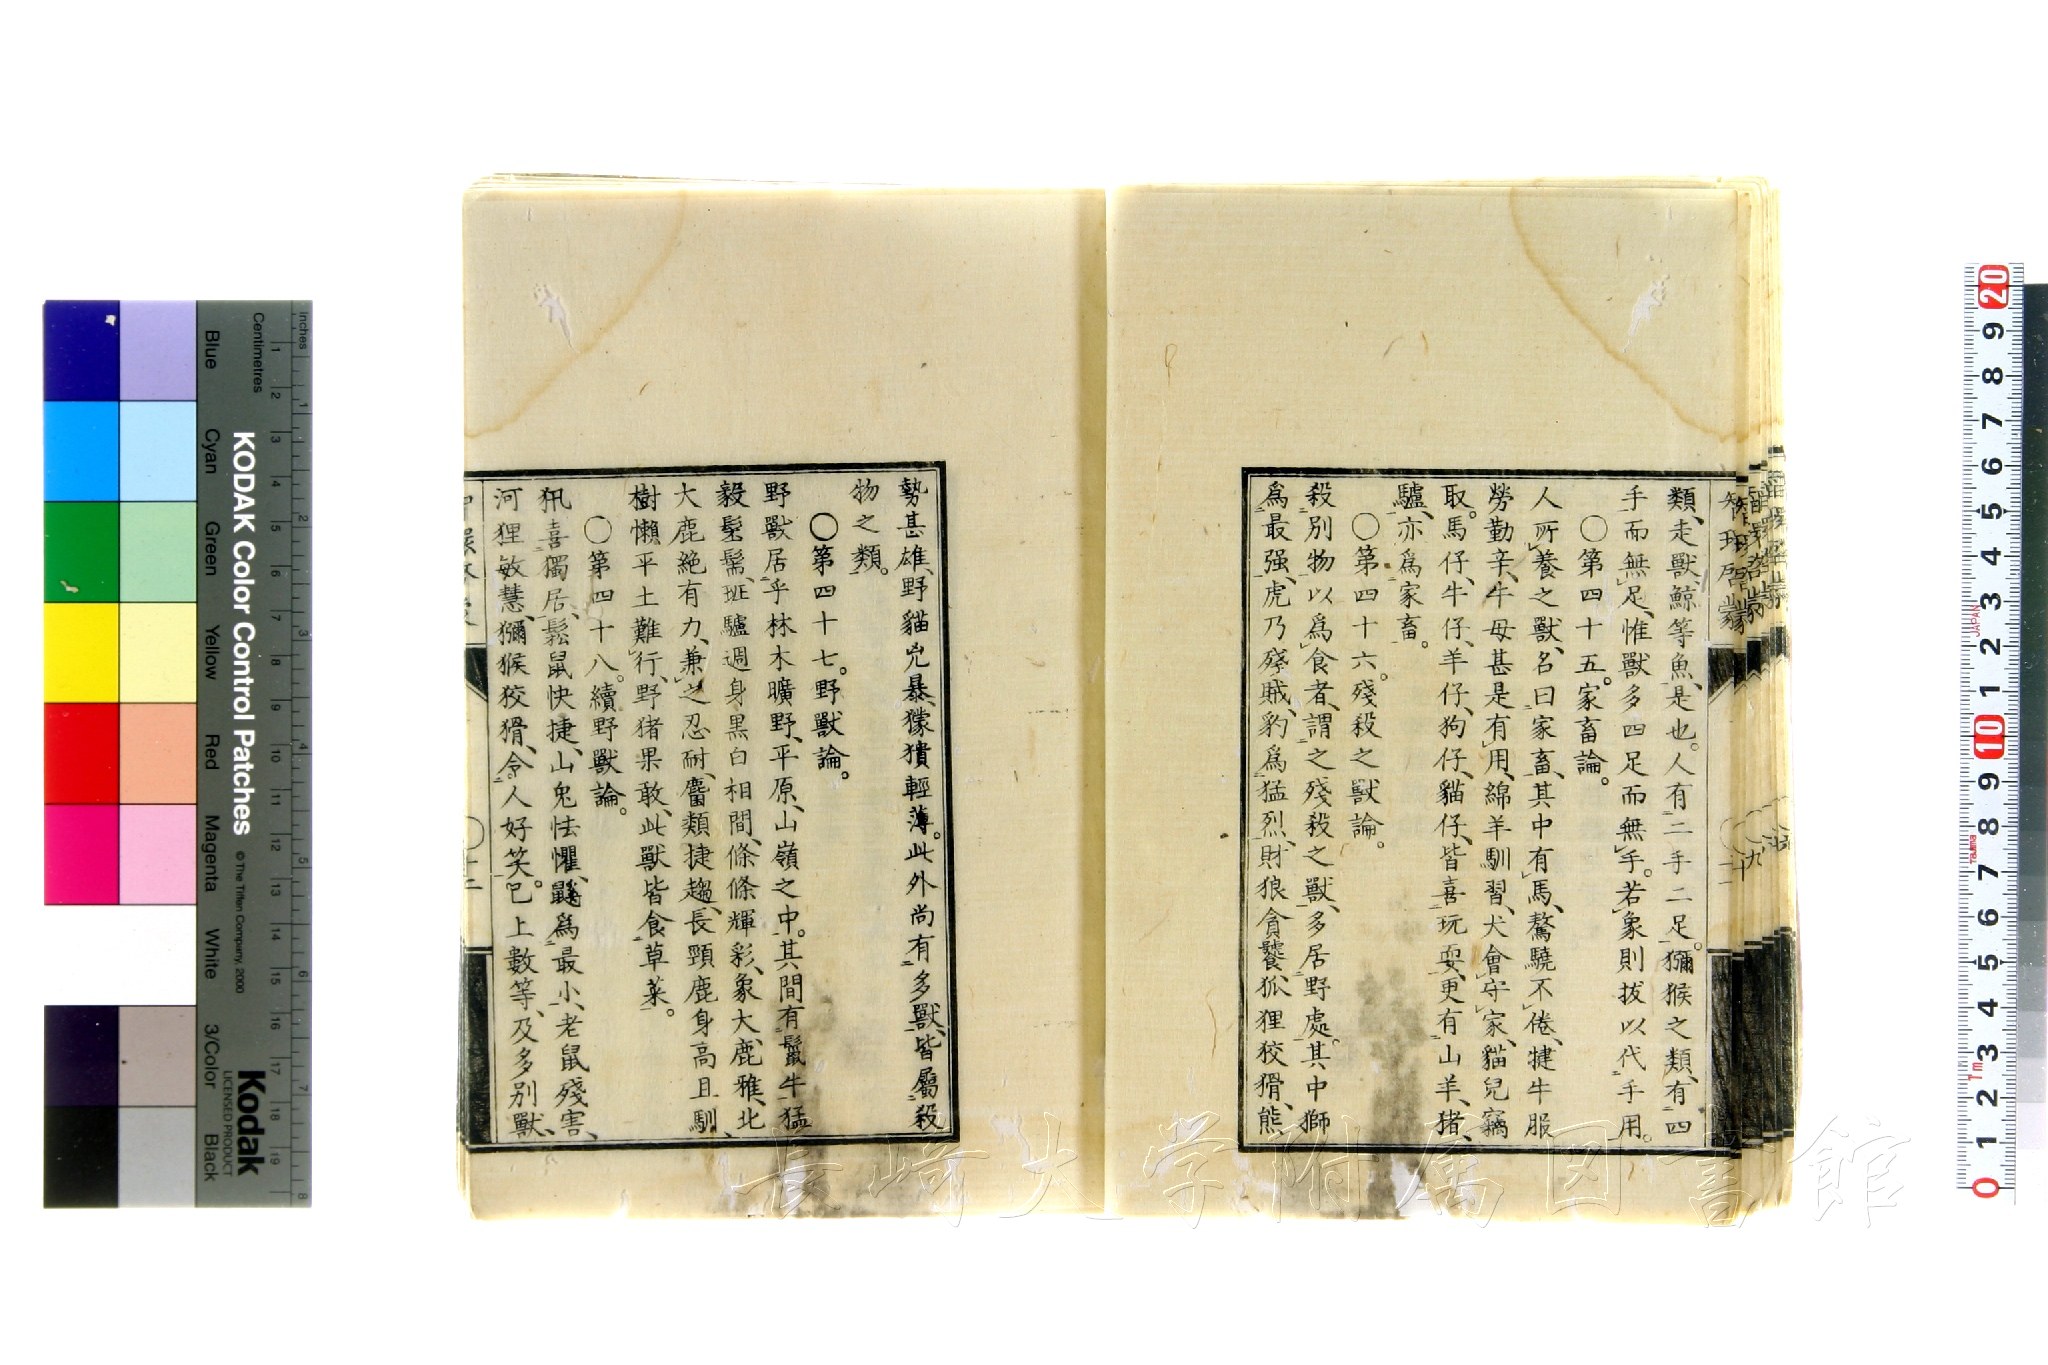 類、走獸鯨等魚是也。人有二手二足。獼猴之類、有四
手而無足、惟獸多四足而無手。若象則拔以代手用。
○第四十五。家畜論。
人所養之獸、名曰家畜、其中有馬、驁驍不倦、犍牛服
勞勤辛、牛母甚是有用、綿羊馴習、犬會守家、貓兒竊
取。馬仔、牛仔、羊仔、狗仔、貓仔、皆喜玩耍、更有山羊、猪、
驢、亦為家畜。
○第四十六。殘殺之獸論。
殺別物以為食者、謂之殘殺之獸、多居野處。其中獅
為最强、虎乃殘賊、豹為猛烈、財狼貪饕、狐狸狡猾、熊
勢甚雄、野貓兇暴、獴獚輕薄。此外尚有多獸、皆屬殺
物之類。
○第四十七。野獸論。
野獸居乎林木曠野、平原、山嶺之中。其間有鬣牛猛
毅髮鬚、班驢週身黑白相間、條條輝彩、象大、鹿雅、北
大鹿絶有力、兼之忍耐、麕類捷趨、長頸鹿身高且馴、
樹懶平土難行、野猪果敢、此獸皆食草菜。
○第四十八。續野獸論。
喜獨居、鬆鼠快捷、山兔怯懼、鼷為最小、老鼠殘害、
河狸敏慧、獼猴狡猾、令人好笑。已上數等、及多別獸、
智環啟蒙
長崎大学附属図書館
KODAK Color Control Patches
© The Tiffen Company, 2000
Kodak
LICENSED PRODUCT
Inches
Centimetres
Blue Cyan Green Yellow Red Magenta White 3/Color Black